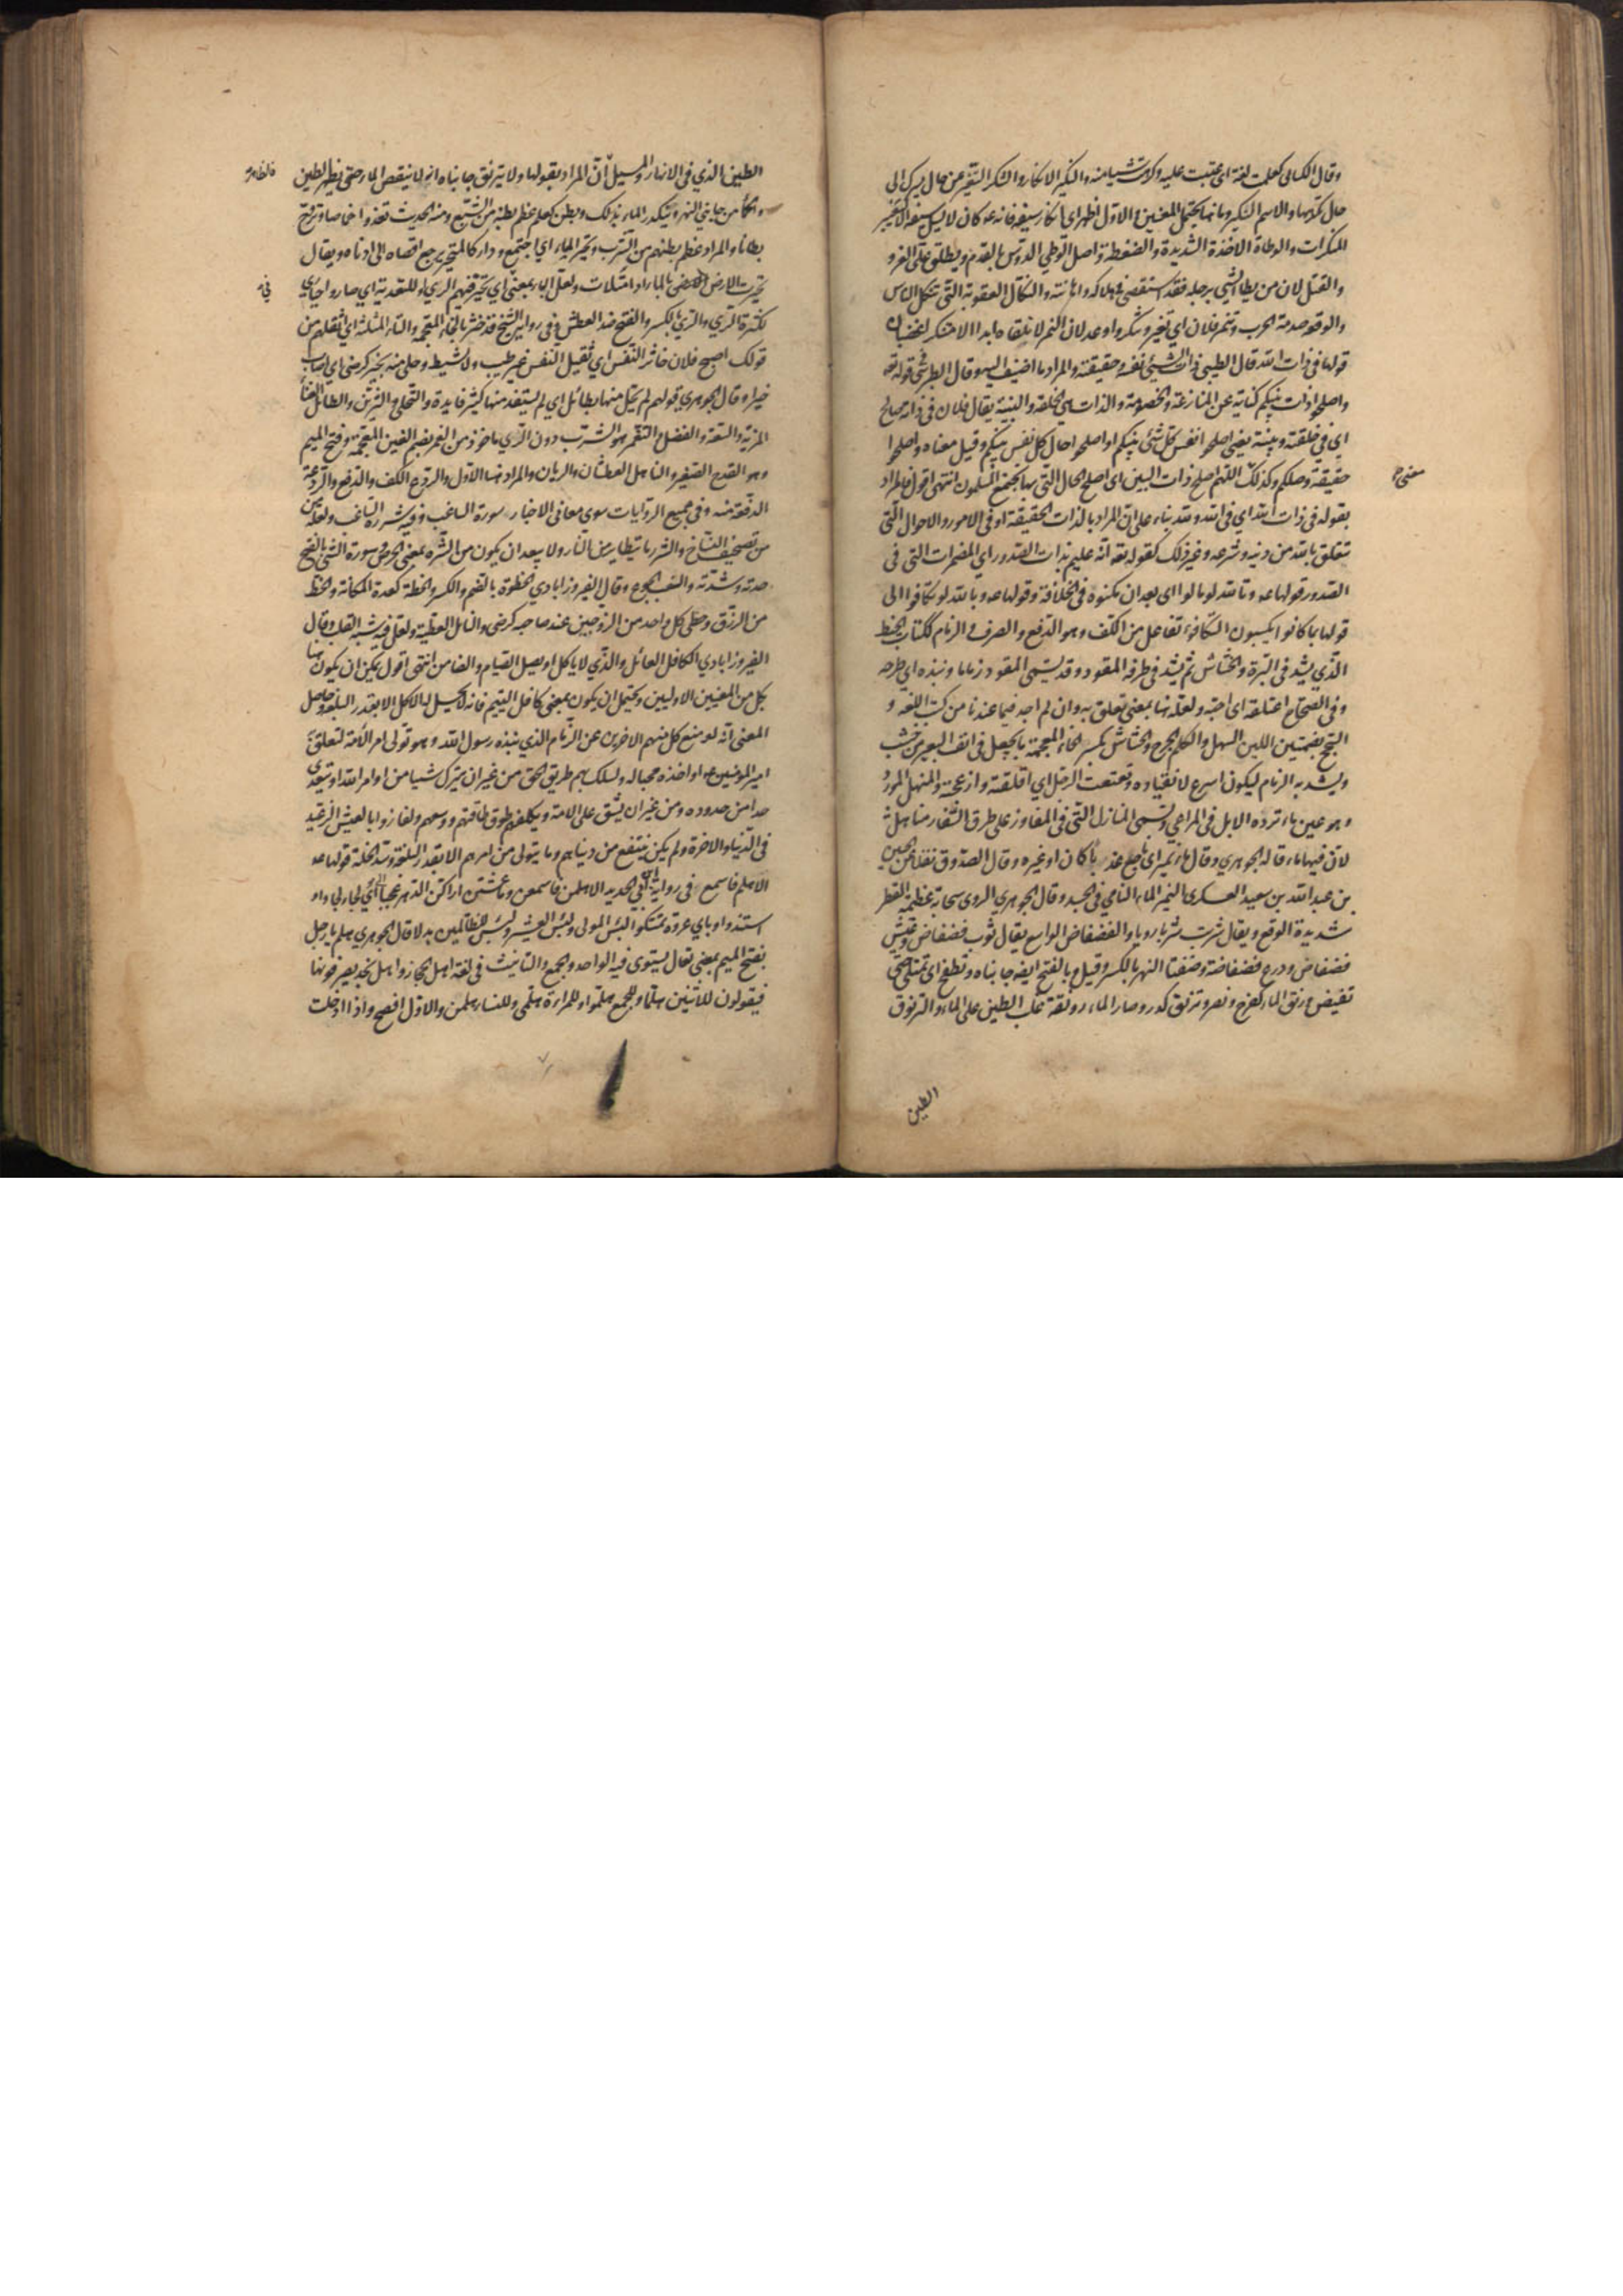 وقال الكسائي كعلمت لغة اي عتبت عليه وكرهت شيئا منه والنكير الانكار والتنكر التغير عن حال يسرك الى
حال تكرهها والاسم النكير وما نها يحتمل المعنيين والاول اظهر اي انكار سيفه فانه ع كان لا يسل سيفه الا لتغيير
المنكرات والوطأة الاخذة الشديدة والضغطة واصل الوطي الدوس بالقدم ويطلق على الغزو
والقتل لان من يطأ الشيء برجله فقد استقصى في هلاكه واهانته والنكال العقوبة التي تنكل الناس
والوقعة صدمة الحرب وتنمر فلان اي تغير وتنكر واوعد لان النمر لا تلقاه ابدا الا متنكرا غضبان
قولها في ذات الله قال الطيبي ذات الشيء نفسه وحقيقته والمراد ما اضيف اليه وقال الطبرسي في قوله تعه
واصلحوا ذات بينكم كناية عن المنازعة والخصومة والذات هي الخلقة والبنية يقال فلان في ذاته صالح
اي في خلقته وبنيته يعني اصلحوا نفس كل شيء بينكم او اصلحوا حال كل نفس بينكم وقيل معناه واصلحوا
حقيقة وصلكم وكذلك اللهم اصلح ذات البين اي اصلح الحال التي بها يجتمع المسلمون انتهى اقول فالمراد
بقوله في ذات الله اي في الله ولله بناء على ان المراد بالذات الحقيقة او في الامور والاحوال التي
تتعلق بالله من دينه وشرعه وغير ذلك كقوله تعه انه عليم بذات الصدور اي المضمرات التي في
الصدور قولها ع وتالله لو مالوا اي بعد ان مكنوه في الخلافة وقولها ع وبالله لو تكافوا الى
قولها بما كانوا يكسبون التكافؤ تفاعل من الكف وهو الدفع والصرف والزمام ككتاب الخيط
الذي يشد في البرة والخشاش ثم يشد في طرفه المقود وقد يسمى المقود زماما ونبذه اي طرحه
وفي الصحاح اعتلقه اي احبه ولعله هنا بمعنى تعلق به وان لم اجد فيما عندنا من كتب اللغة و
السجح بضمتين اللين السهل والكلم الجرح والخشاش بكسر الخاء المعجمة ما يجعل في انف البعير من خشب
ويشد به الزمام ليكون اسرع لانقياده وتعتعت الرجل اي اقلقته وازعجته والمنهل المورد
وهو عين ماء ترده الابل في المراعي وتسمى المنازل التي في المفاوز على طرق السفار مناهل
لان فيها ماء قاله الجوهري وقال ماء نمير اي ناجع عذبا كان او غيره وقال الصدوق نقلا عن الحسين
بن عبد الله بن سعيد العسكري النمير الماء النامي في الجسد وقال الجوهري الروى سحابة عظيمة القطر
شديدة الوقع ويقال شربت شربا رويا والفضفاض الواسع يقال ثوب فضفاض وعيش
فضفاض ودرع فضفاضة وضفتا النهر بالكسر وقيل وبالفتح ايضه جانباه وتطفح اي تمتلي حتى
تفيض ورنق الماء كفرح ونصر وترنق كدر وصار الماء رونقة غلب الطين على الماء والترنوق
معنى ح
الطين
الطين الذي في الانهار والمسيل ان المراد بقولها ولا يترنق جانباه انه لا ينقص الماء حتى يظهر الطين
والحمأ من جانبي النهر ويتكدر الماء بذلك وبطن كعلم عظم بطنه من الشبع ومنه الحديث تغدو خماصا وتروح
بطانا والمراد عظم بطنهم من الشرب وتحير الماء اي اجتمع ودار كالمتحير يرجع اقصاه الى ادناه ويقال
تحيرت الارض بالماء اذا امتلأت ولعل الباء بمعنى اي تحير فيهم الري او للتعدية اي صاروا حيارى
لكثرة الري والري بالكسر والفتح ضد العطش وفي رواية الشيخ قد خثر بالخاء المعجمة والثاء المثلثة اي اثقلهم من
قولك اصبح فلان خاثر النفس اي ثقيل النفس غير طيب ولا نشيط وحلي منه بخير كرضي اي اصاب
خيرا وقال الجوهري قولهم لم يحل منها بطائل اي لم يستفد منها كثير فايدة والتحلي التزين والطائل الغناء
المزية والسعة والفضل التغمر هو الشرب دون الري ماخوذ من الغمر بضم الغين المعجمة وفتح الميم
وهو القدح الصغير والناهل العطشان والريان والمراد هنا الاول والردع الكف والدفع والردعة
الدفعة منه وفي جميع الروايات سوى معاني الاخبار سورة الساغب وفيه شررة الساغب ولعله من
من تصحيف النساخ والشرر ما يتطاير من النار ولا يبعد ان يكون من الشره بمعنى الحرص وسورة الشيء بالفتح
حدته وشدته والسغب الجوع وقال الفيروزابادي الحظوة بالضم والكسر والحظة كعدة المكانة والحظ
من الرزق وحظي كل واحد من الزوجين عند صاحبه كرضي والنائل العطية ولعل فيه شبه القلب وقال
الفيروزابادي الكافل العائل والذي لا ياكل او يصل الصيام والضامن انتهى اقول يمكن ان يكون هنا
بكل من المعنيين الاوليين ويحتمل ان يكون بمعنى كافل اليتيم فانه لا يحل له الاكل الا بقدر البلغة وحاصل
المعنى انه لو منع كل منهم الاخرين عن الزمام الذي نبذه رسول الله وهو تولي امر الامة لتعلق
امير المؤمنين ع او اخذه محبا له ولسلك بهم طريق الحق من غير ان يترك شيئا من اوامر الله او يتعدى
حدا من حدوده ومن غير ان يشق على الامة ويكلفهم فوق طاقتهم ووسعهم ولفازوا بالعيش الرغيد
في الدنيا والاخرة ولم يكن ينتفع من دنياهم وما يتولى من امرهم الا بقدر البلغة وسد الخلة قولها ع
الا هلم فاسمع في رواية ابن ابي الحديد الا هلمن فاسمعن وما عشتن اراكن الدهر عجبا الى اي لجاء لجاوا و
استندوا وباي عروة تمسكوا لبئس المولى ولبئس العشير ولبئس للظالمين بدلا قال الجوهري هلم يا رجل
بفتح الميم بمعنى تعال يستوى فيه الواحد والجمع والتانيث في لغة اهل الحجاز واهل نجد يصرفونها
فيقولون للاثنين هلما وللجمع هلموا وللمرأة هلمي وللنساء هلممن والاول افصح واذا ادخلت